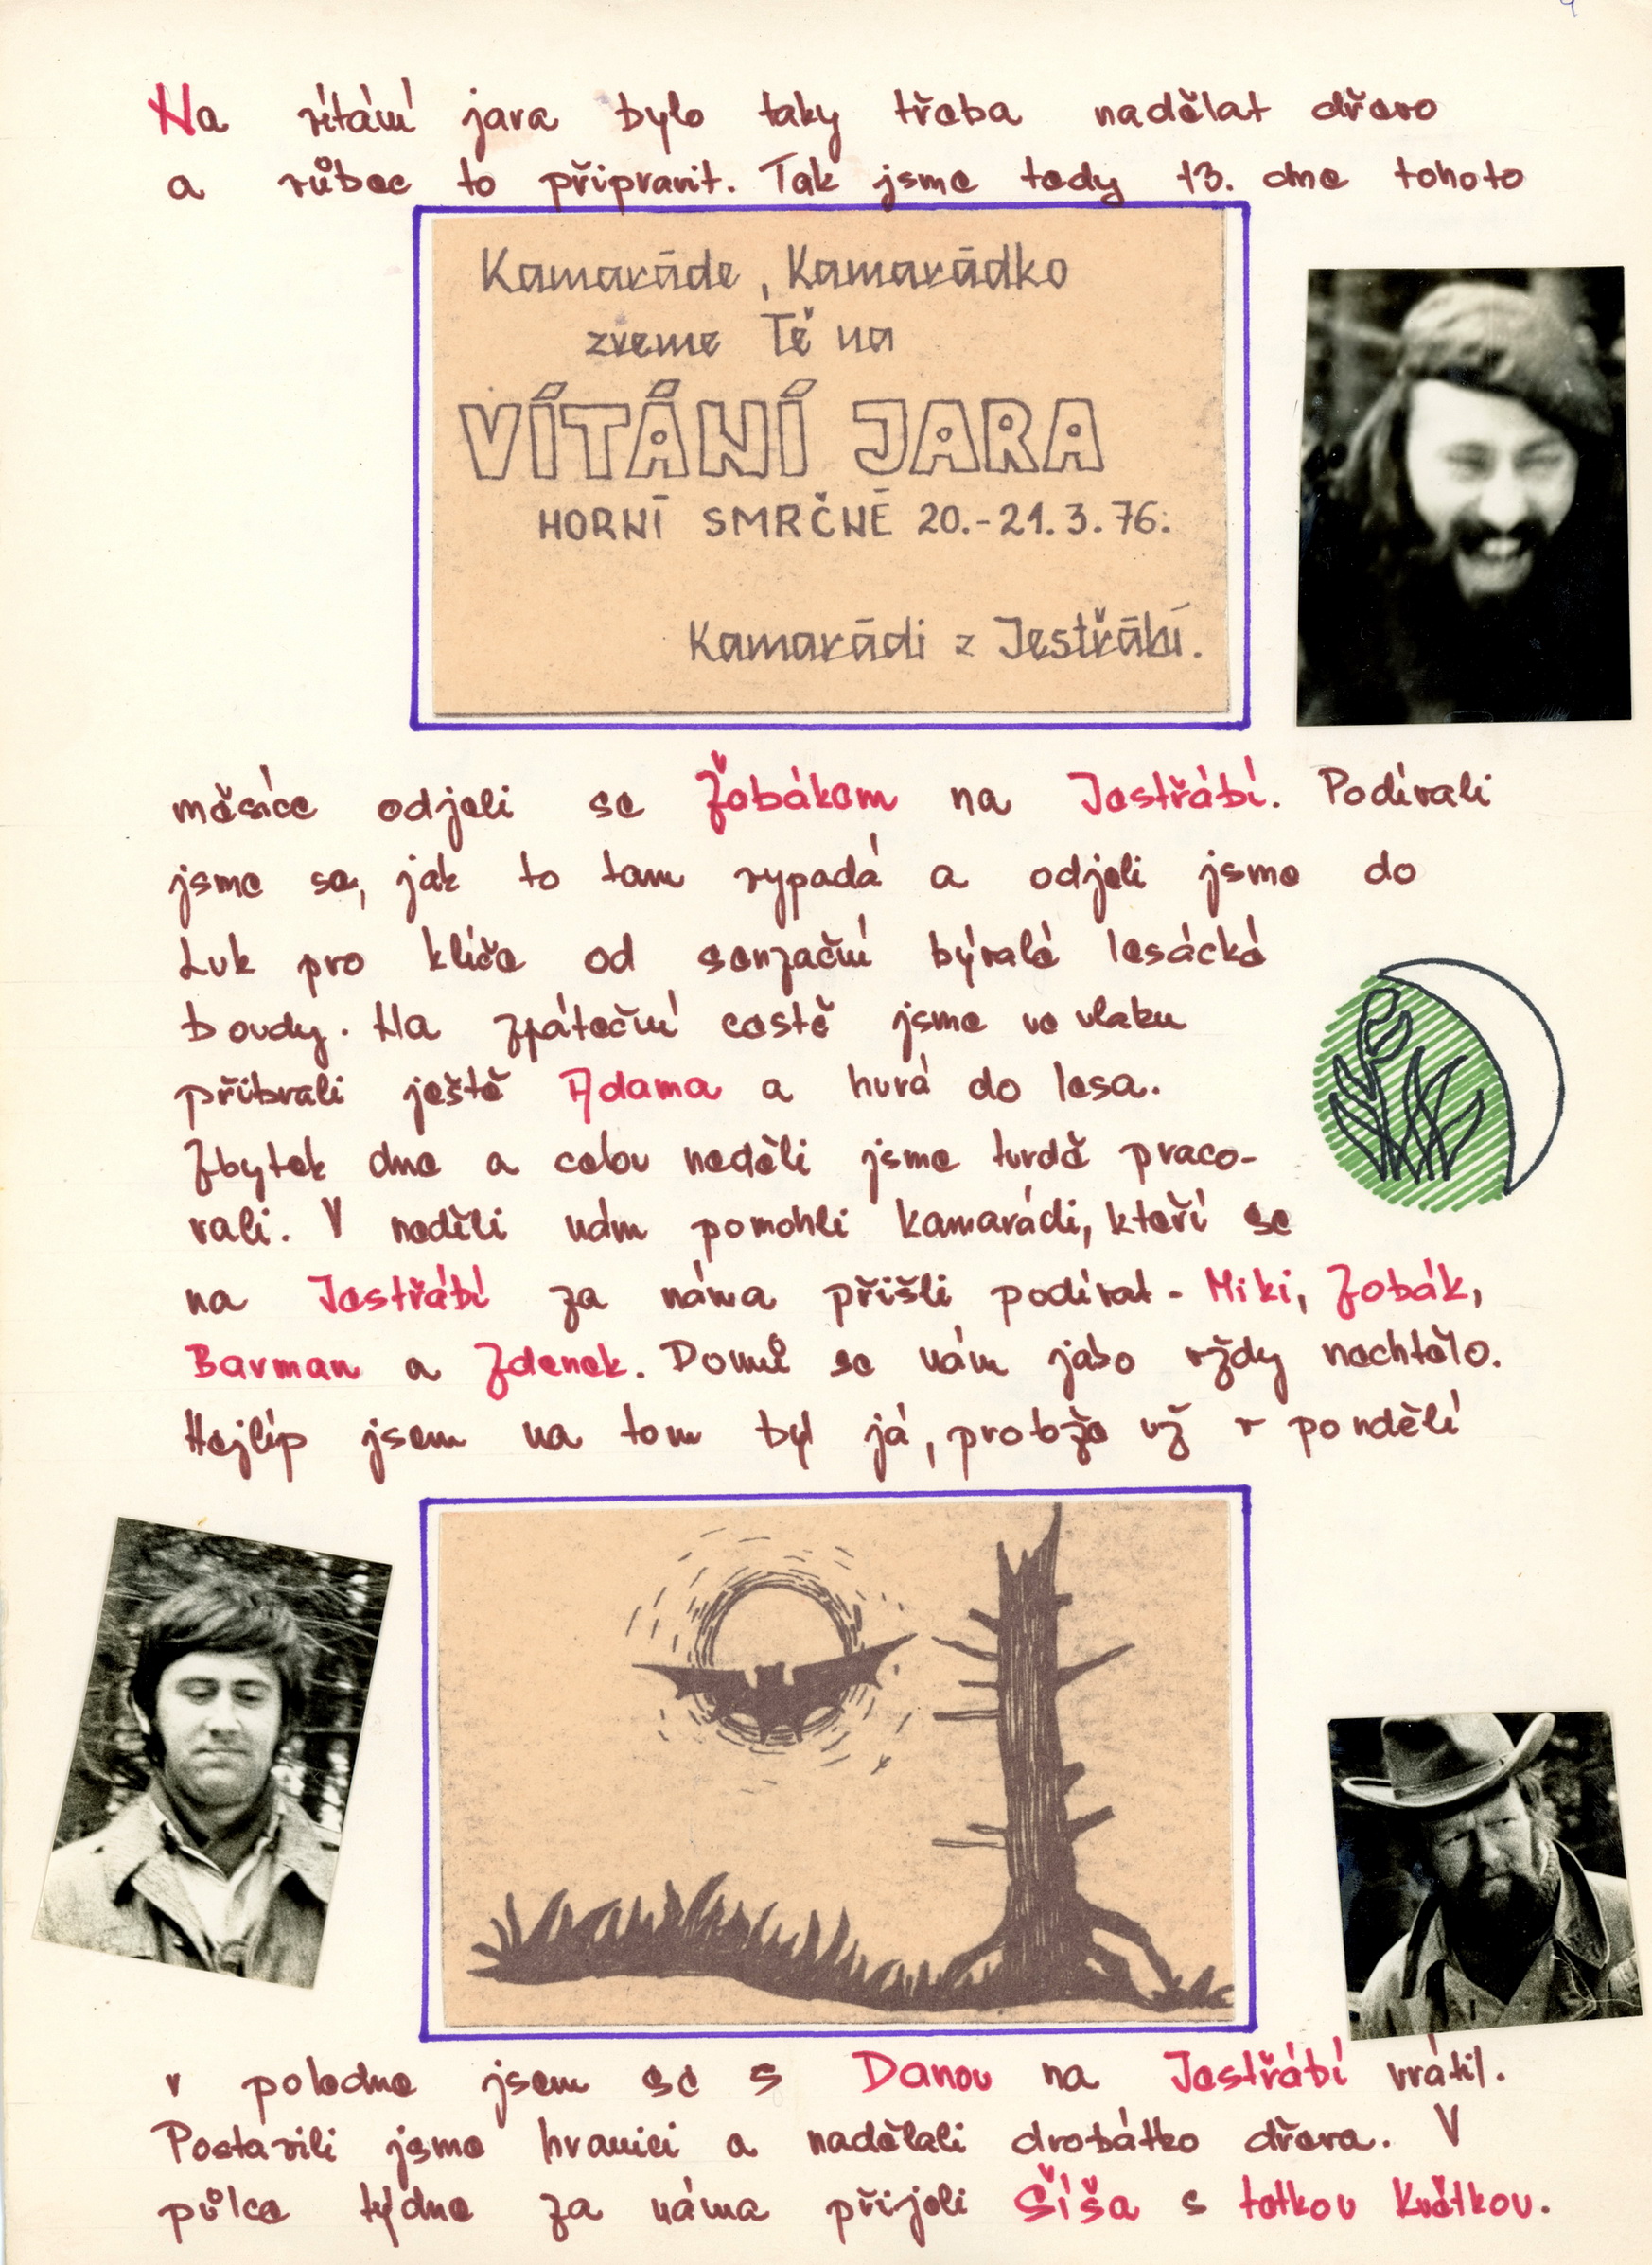 Na vítání jara bylo taky třeba nadělat dřevo
a vůbec to připravit. Tak jsme tedy 13. dne tohoto
Kamaráde, Kamarádko
zveme Tě na
VÍTÁNÍ JARA
HORNÍ SMRČNÉ 20.-21.3.76.
Kamarádi z Jestřábí.
měsíce odjeli se Žobákem na Jestřábí. Podívali
jsme se, jak to tam vypadá a odjeli jsme do
Luk pro klíče od senzační bývalé lesácké
boudy. Na zpáteční cestě jsme ve vlaku
přibrali ještě Adama a hurá do lesa.
Zbytek dne a celou neděli jsme tvrdě praco-
vali. V neděli nám pomohli kamarádi, kteří se
na Jestřábí za náma přišli podívat - Miki, Zobák,
Barman a Zdenek. Domů se nám jako vždy nechtělo.
Nejlíp jsem na tom byl já, probže už v pondělí
v poledne jsem se s Danou na Jestřábí vrátil.
Postavili jsme hranici a nadělali drobátko dřeva. V
půlce týdne za náma přijeli Šíša s tetkou Květkou.